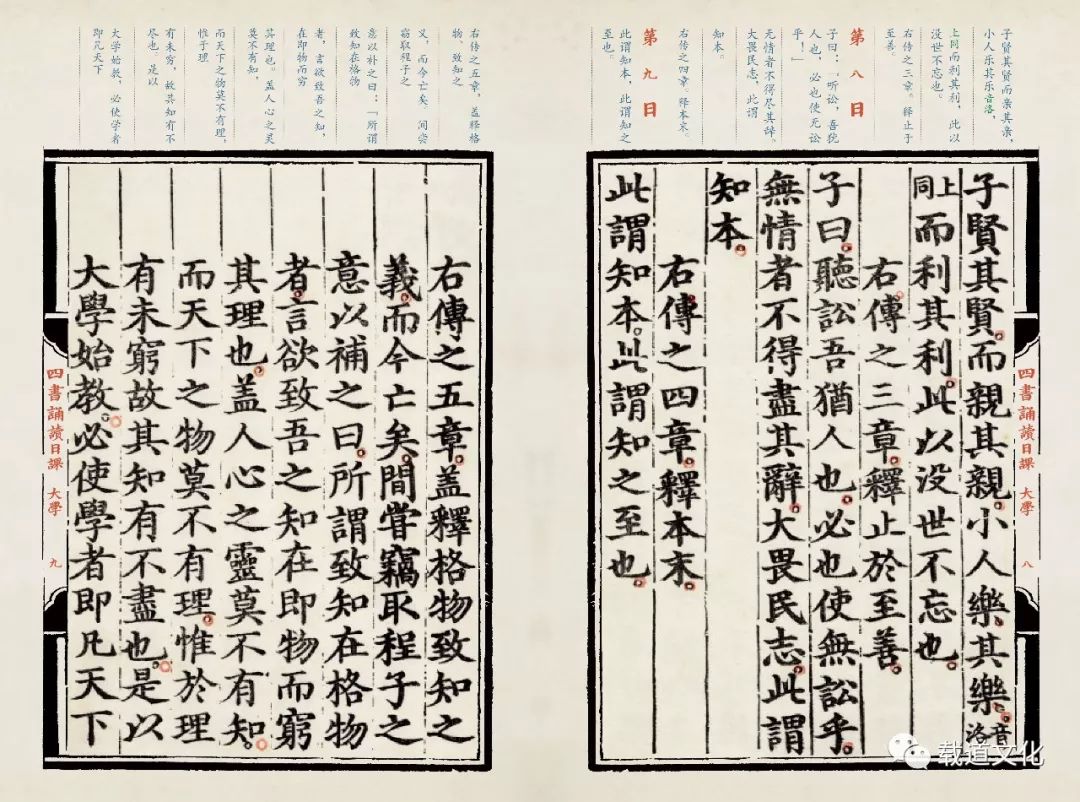 子贤其贤而亲其亲，
小人乐其乐音洛，
上同而利其利，此以
没世不忘也。
右传之三章。释止于
至善。
第八日
子曰：「听讼，吾犹
人也，必也使无讼
乎！」
无情者不得尽其辞。
大畏民志，此谓
知本。
右传之四章。释本末。
第九日
此谓知本，此谓知之
至也。
子賢其賢。而親其親。小人樂其樂。音洛
上同而利其利。此以没世不忘也。
右傳之三章。釋止於至善。
子曰。聽訟吾猶人也。必也使無訟乎。
無情者不得盡其辭。大畏民志。此謂
知本。
右傳之四章。釋本末。
此謂知本。此謂知之至也。
四書誦讀日課 大學 八
右传之五章，盖释格
物、致知之
义，而今亡矣。间尝
窃取程子之
意以补之曰：「所谓
致知在格物
者，言欲致吾之知，
在即物而穷
其理也。盖人心之灵
莫不有知，
而天下之物莫不有理，
惟于理
有未穷，故其知有不
尽也。是以
大学始教，必使学者
即凡天下
右傳之五章。蓋釋格物致知之
義。而今亡矣。間嘗竊取程子之
意以補之曰。所謂致知在格物
者。言欲致吾之知在即物而窮
其理也。盖人心之靈莫不有知。
而天下之物莫不有理。惟於理
有未窮故其知有不盡也。是以
大學始教。必使學者即凡天下
四書誦讀日課 大學 九
载道文化